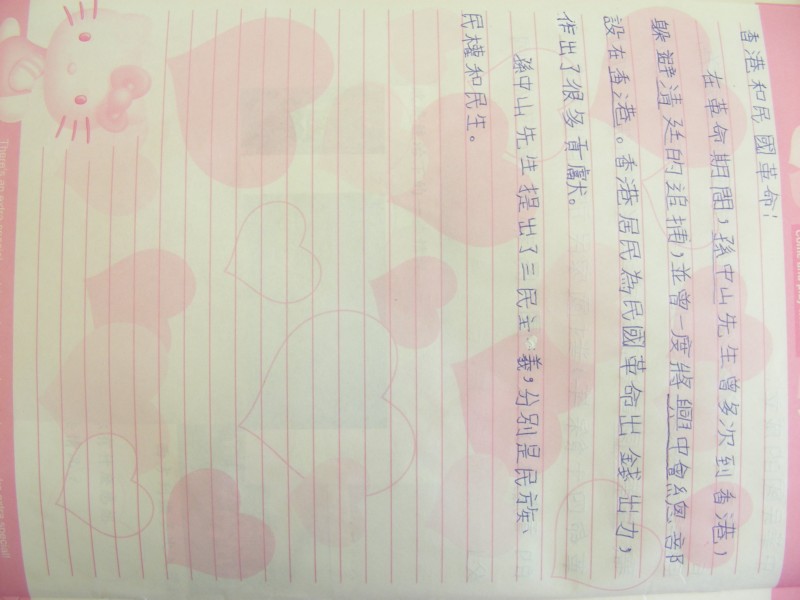 香港和民國革命！
在革命期間，孫中山先生曾多次到香港，
躲避清廷的追捕，並曾一度將興中會總部
設在香港。香港居民為民國革命出錢出力，
作出了很多貢獻。
孫中山先生提出了三民主義，分別是民族、
民權和民生。